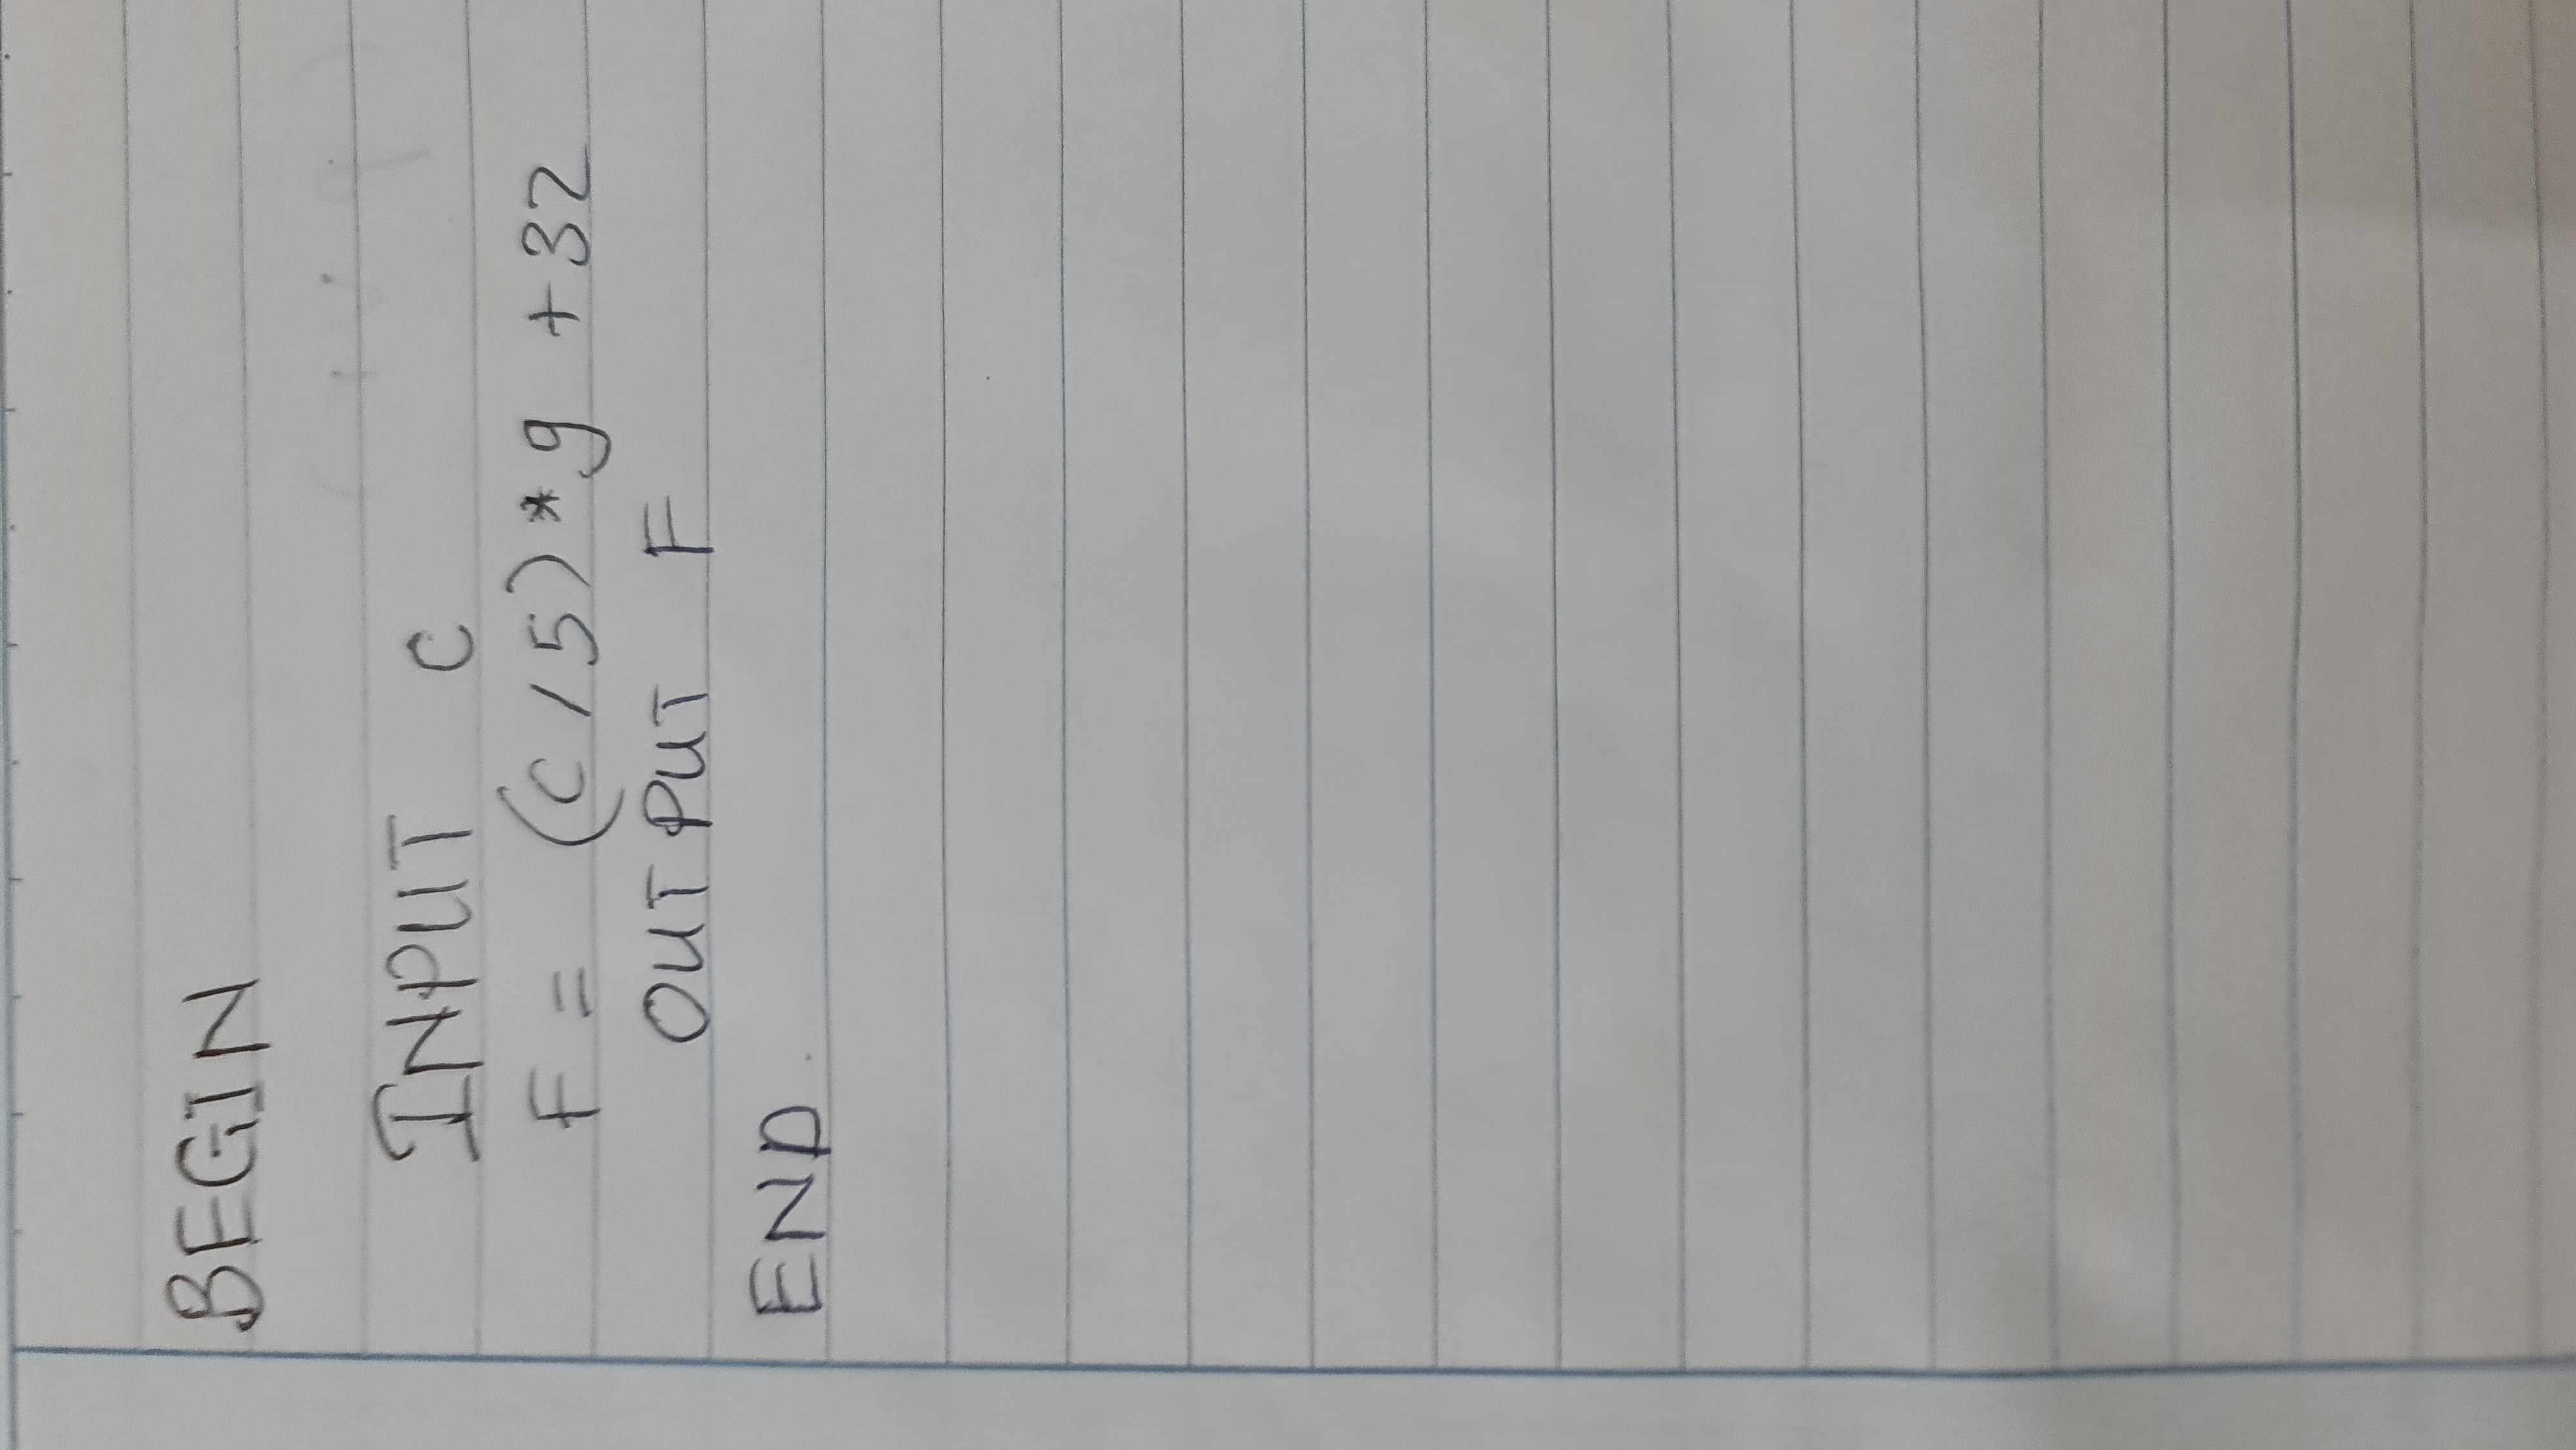 BEGIN
INPUT C
F = (C/5) * 9 + 32
OUTPUT F
END